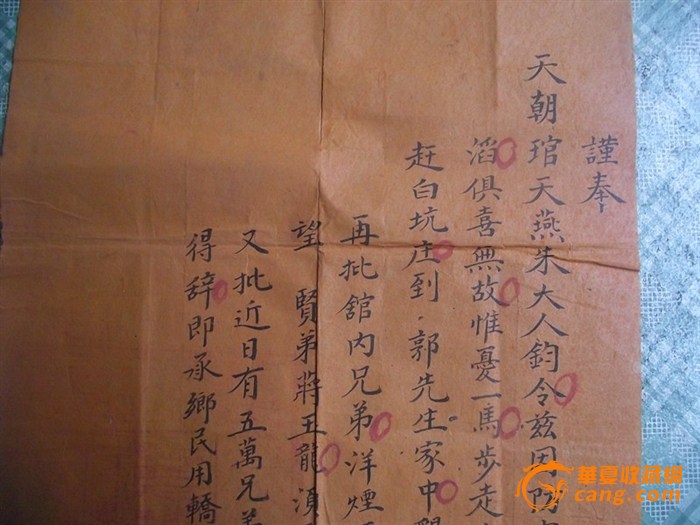 謹奉
天朝琯天燕朱大人鈞令兹因
滔俱喜無故惟憂一馬步走
赶白坑庄到郭先生家中
再批舘內兄弟洋煙
望賢弟蔣王龍須
又批近日有五萬兄弟
得辞即承鄉民用轎
華夏收藏網
cang.com